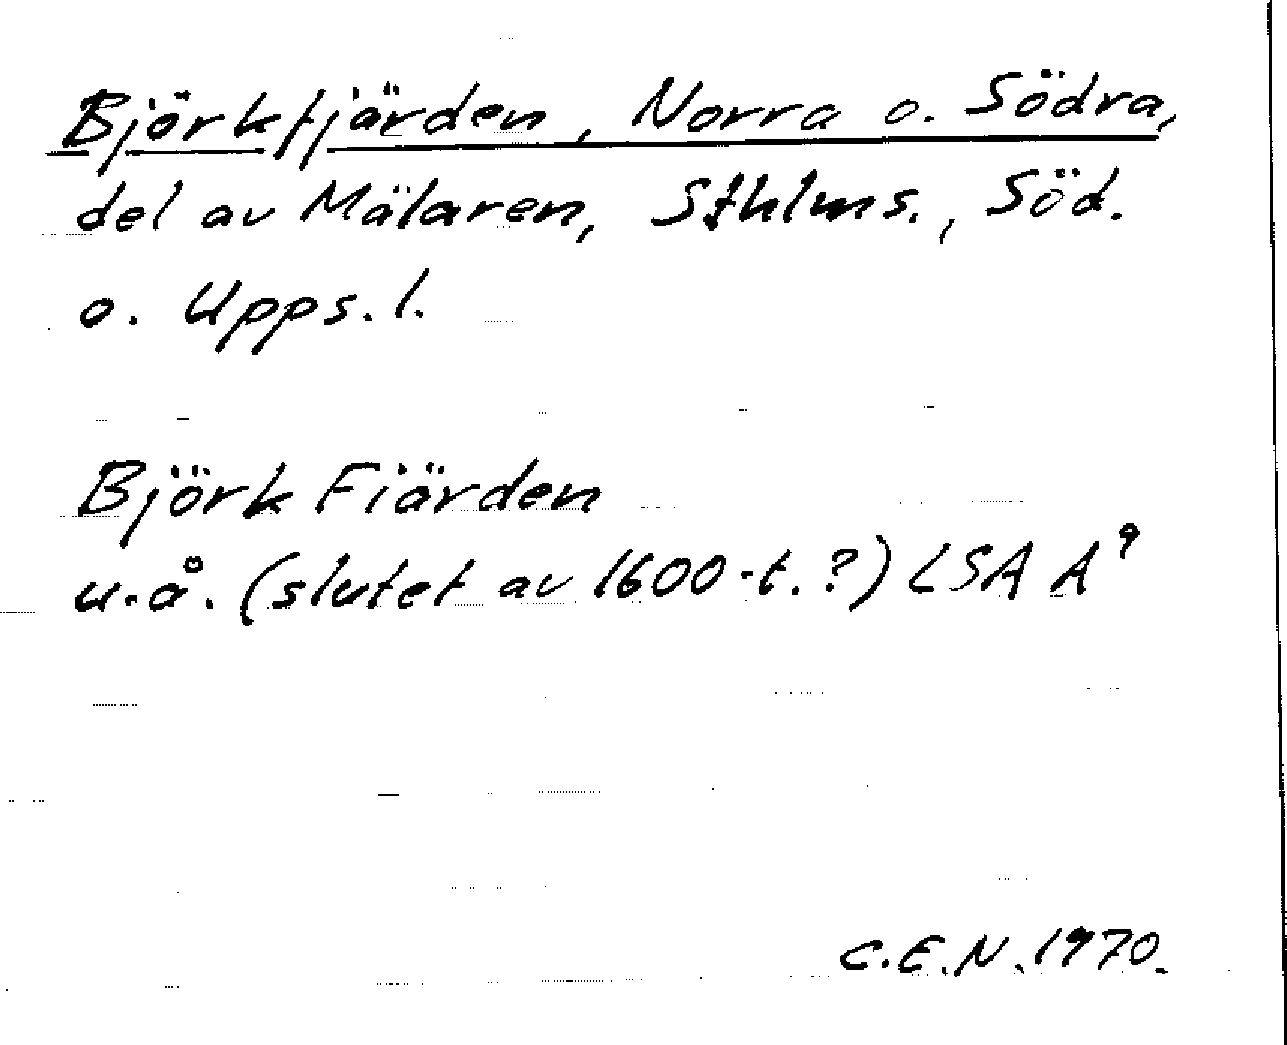 Björkfjärden, Norra o. Södra,
del av Mälaren, Sthlms., Söd.
o. Upps. l.
Björk Fiärden
u.å. (slutet av 1600-t.?) LSA A⁹
C.E.N. 1970.